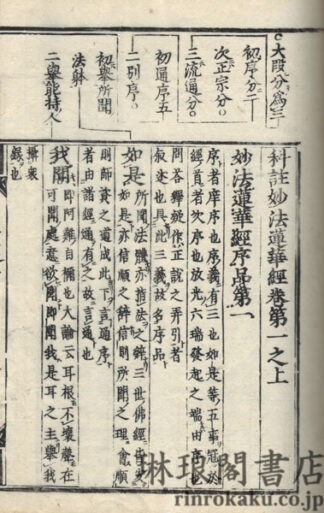 ○大段分爲三
初序分二
次正宗分○
三流通分○
初通序五
二別序○
初擧所聞
法躰
二擧能持人
科註妙法蓮華經卷第一之上
妙法蓮華經序品第一
序者庠序也序義有三也如是等五事冠於
經首者次序也放光六瑞發起之端由序也
問答釋疑作正說之弄引者
叙述也具此三義故名序品
如是
所聞法體亦指法之辭三世佛經皆安
如是亦信順之辭信則所聞之理會順
則師資之道成此下言通序
者由諸經通有之故言通也
我聞
即阿難自稱也大論云耳根不壞聲在
可聞處意欲聞即聞我是耳之主擧我
攝衆
緣也
琳琅閣書店
rinrokaku.co.jp